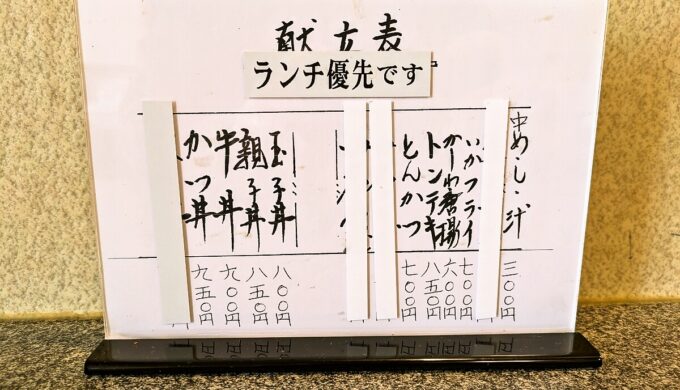 献立表
ランチ優先です
中めし・汁 三〇〇円
いかフライ 七〇〇円
かしわ唐揚 六〇〇円
トンテキ 八五〇円
とんかつ 七〇〇円
玉子丼 八〇〇円
親子丼 八五〇円
牛丼 九〇〇円
かつ丼 九五〇円